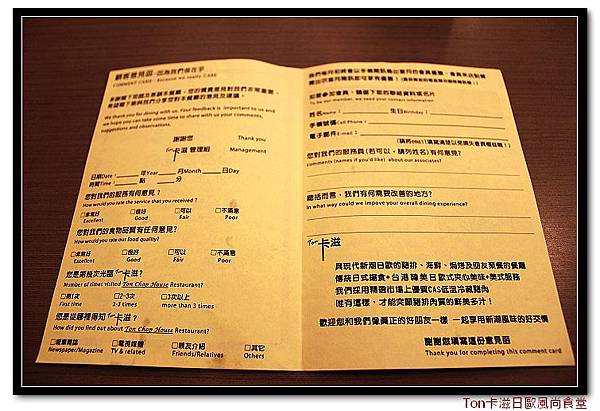 顧客意見函-因為我們很在乎
COMMENT CARD - Because we really CARE
We thank you for dining with us. Your feedback is important to us and
we hope you can take some time to share with us your comments,
suggestions and observations.
謝謝您 Thank you
Ton卡滋 管理組 Management
日期Date：____年Year____月Month____日Day
時間Time：____點____分
您對我們的服務有何意見？
How would you rate the service that you received ?
□非常好 □很好 □可以 □不滿意
Excellent Good Fair Poor
您對我們的食物品質有任何意見？
How would you rate our food quality?
□非常好 □很好 □可以 □不滿意
Excellent Good Fair Poor
您是第幾次光臨 Ton卡滋？
Number of times visited Ton Chop House Restaurant?
□第1次 □2-3次 □3次以上
First time 2-3 times more than 3 times
您是從哪裡得知 Ton卡滋？
How did you find out about Ton Chop House Restaurant?
□報章雜誌 □電視媒體 □親友介紹 □其它
Newspaper/Magazine TV & related Friends/Relatives Others
如果參加會員，請留下您的聯絡資料或名片
To be our member, we need your contact information.
姓名Name： 生日Birthday：
手機號碼Cell Phone：
電子郵件E-mail：
您對我們的服務員(若可以，請列姓名)有何意見？
comments (names if you'd like) about our associates?
總括而言，我們有何需要改善的地方？
In what way could we impove your overall dining experience?
Ton卡滋
具現代新潮日歐的豬排、海鮮、焗烤及朋友聚餐的餐廳
傳統日式擺食+台港韓美日歐式夾心美味+美式服務
我們採用精選市場上優質CAS低溫冷藏豬肉
唯有這樣，才能突顯豬排肉質的鮮美多汁！
歡迎您和我們像真正的好朋友一樣 一起享用新潮風味的好交情
謝謝您填寫這份意見函
Thank you for completing this comment card
Ton卡滋日歐風尚食堂